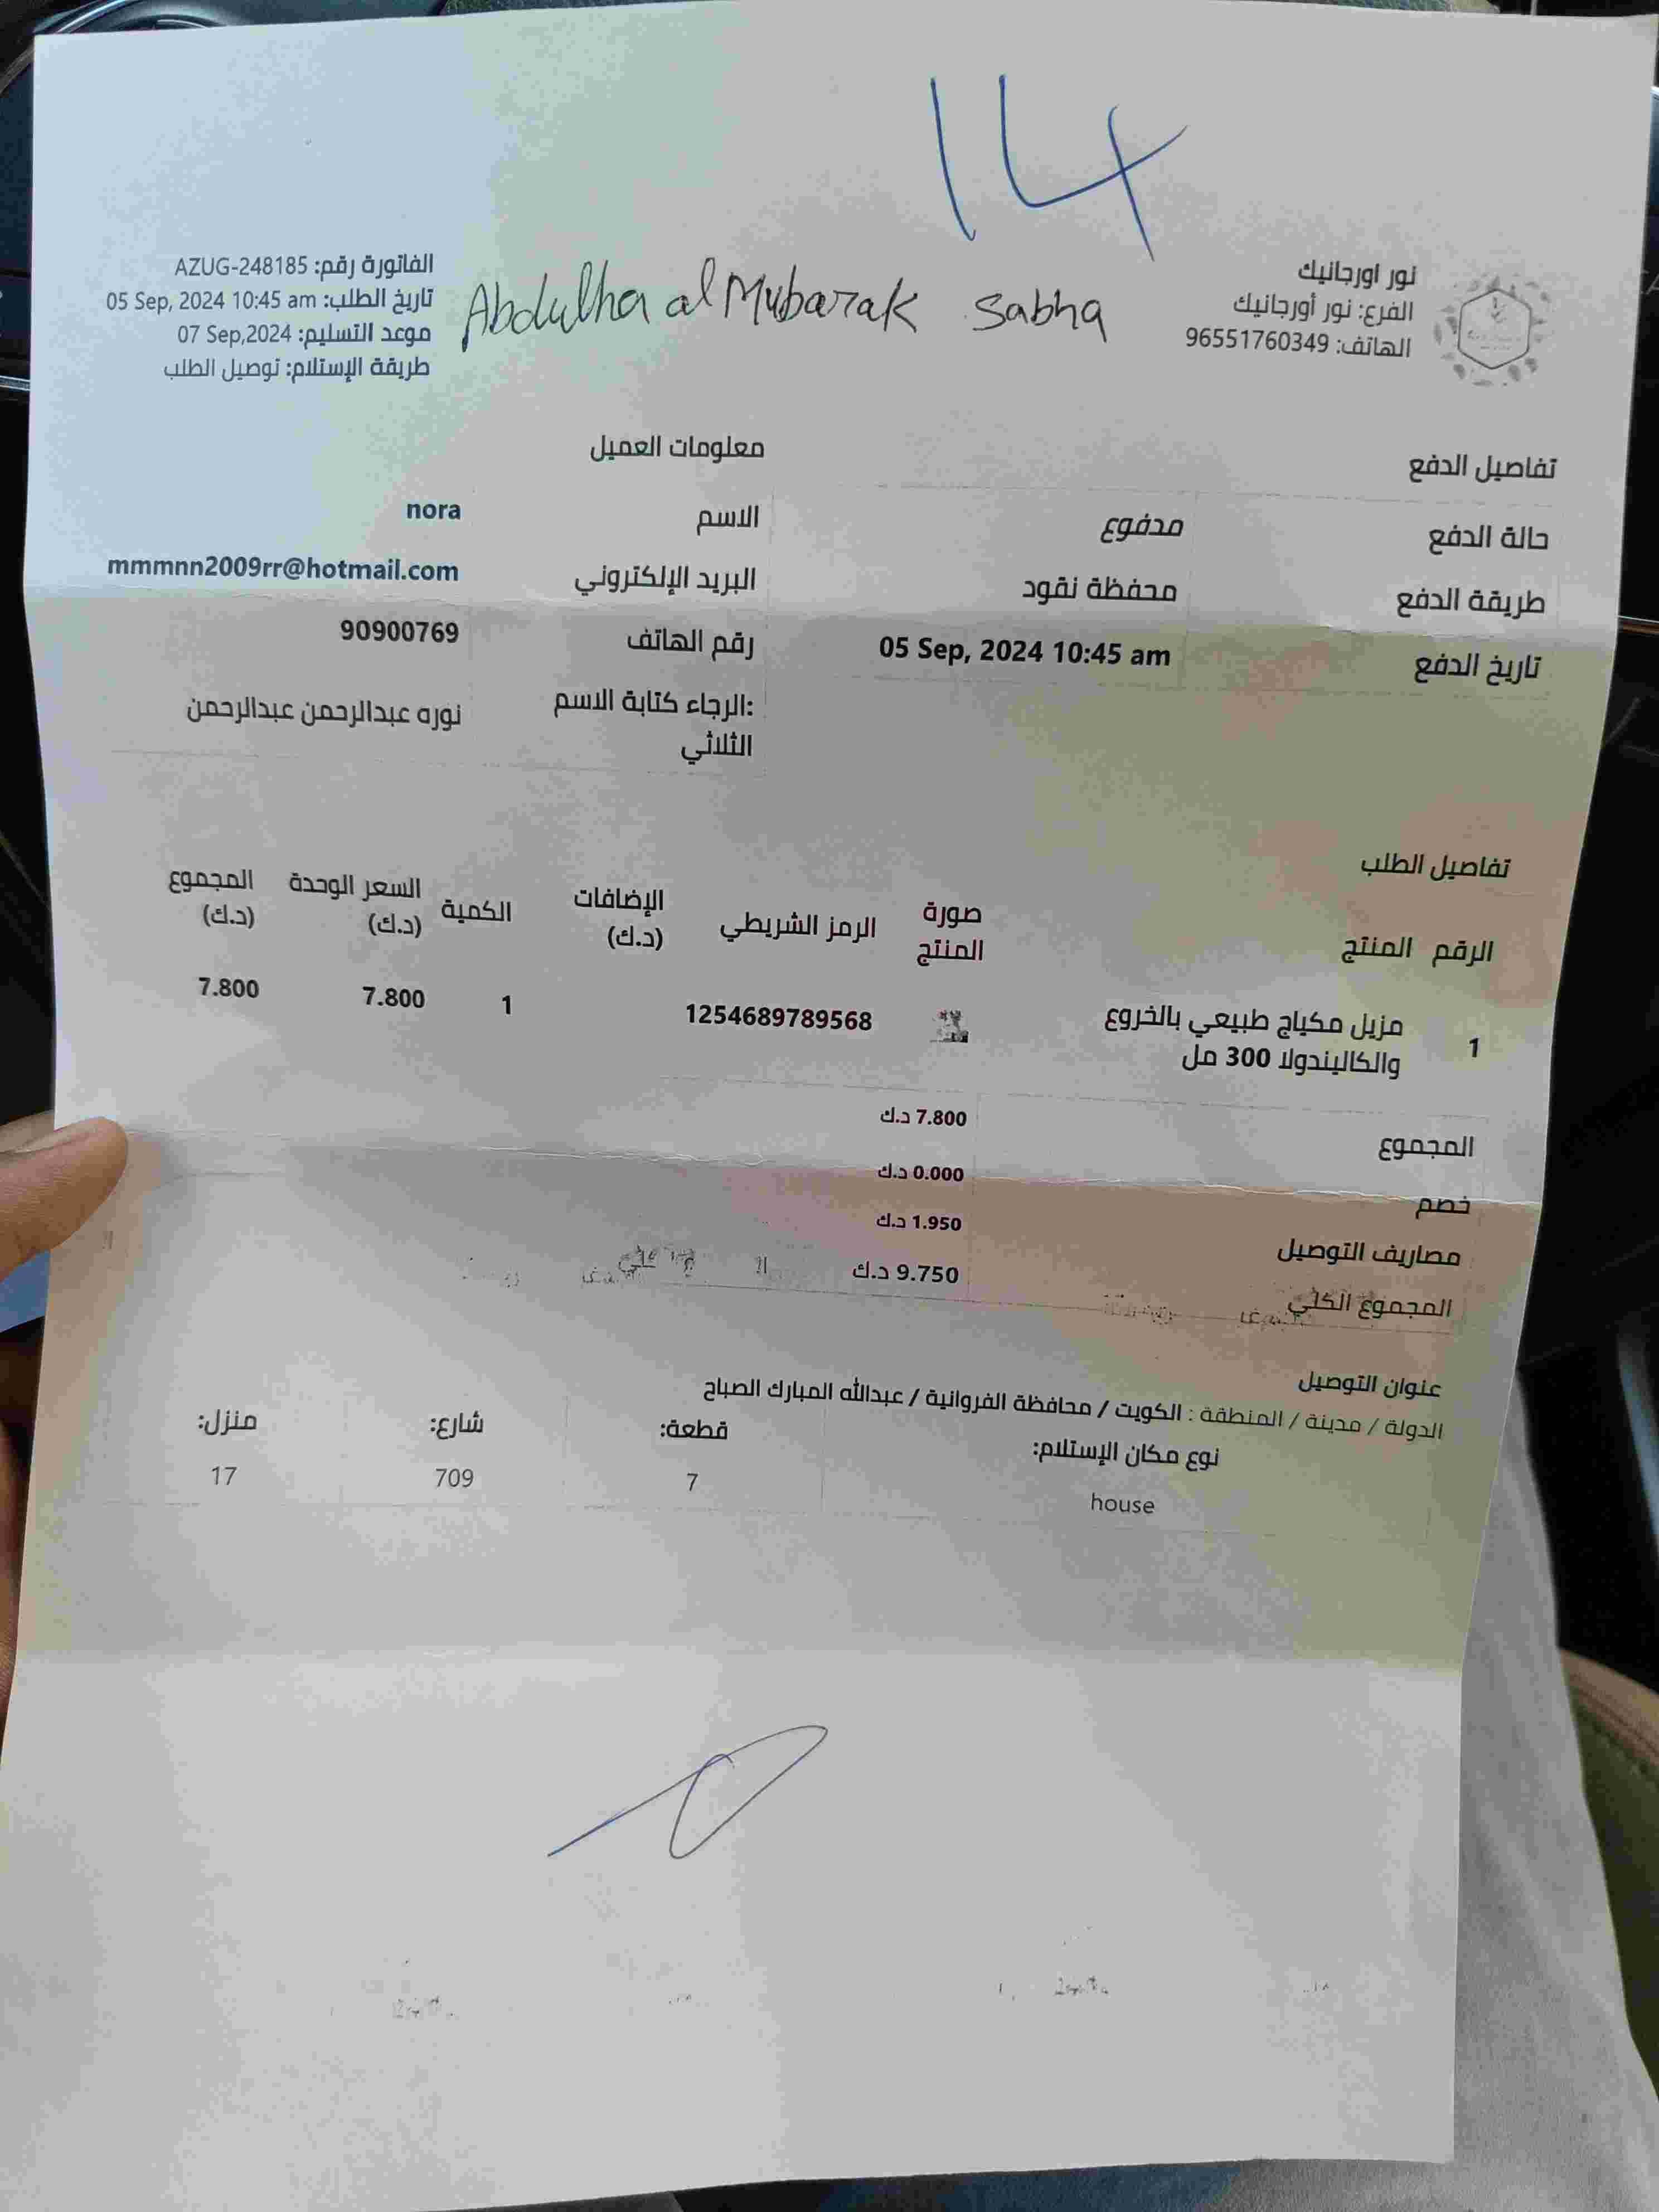 14
نور اورجانيك
الفرع: نور أورجانيك
الهاتف: 96551760349
Abdulha al Mubarak sabha
الفاتورة رقم: AZUG-248185
تاريخ الطلب: 05 Sep, 2024 10:45 am
موعد التسليم: 07 Sep,2024
طريقة الإستلام: توصيل الطلب
تفاصيل الدفع
حالة الدفع مدفوع
طريقة الدفع محفظة نقود
تاريخ الدفع 05 Sep, 2024 10:45 am
معلومات العميل
الاسم nora
البريد الإلكتروني mmmnn2009rr@hotmail.com
رقم الهاتف 90900769
:الرجاء كتابة الاسم نوره عبدالرحمن عبدالرحمن
الثلاثي
تفاصيل الطلب
الرقم المنتج صورة المنتج الرمز الشريطي الإضافات (د.ك) الكمية السعر الوحدة (د.ك) المجموع (د.ك)
1 مزيل مكياج طبيعي بالخروع 1254689789568 1 7.800 7.800
والكاليندولا 300 مل
المجموع 7.800 د.ك
خصم 0.000 د.ك
مصاريف التوصيل 1.950 د.ك
المجموع الكلي 9.750 د.ك
عنوان التوصيل
الدولة / مدينة / المنطقة : الكويت / محافظة الفروانية / عبدالله المبارك الصباح
نوع مكان الإستلام: قطعة: شارع: منزل:
house 7 709 17